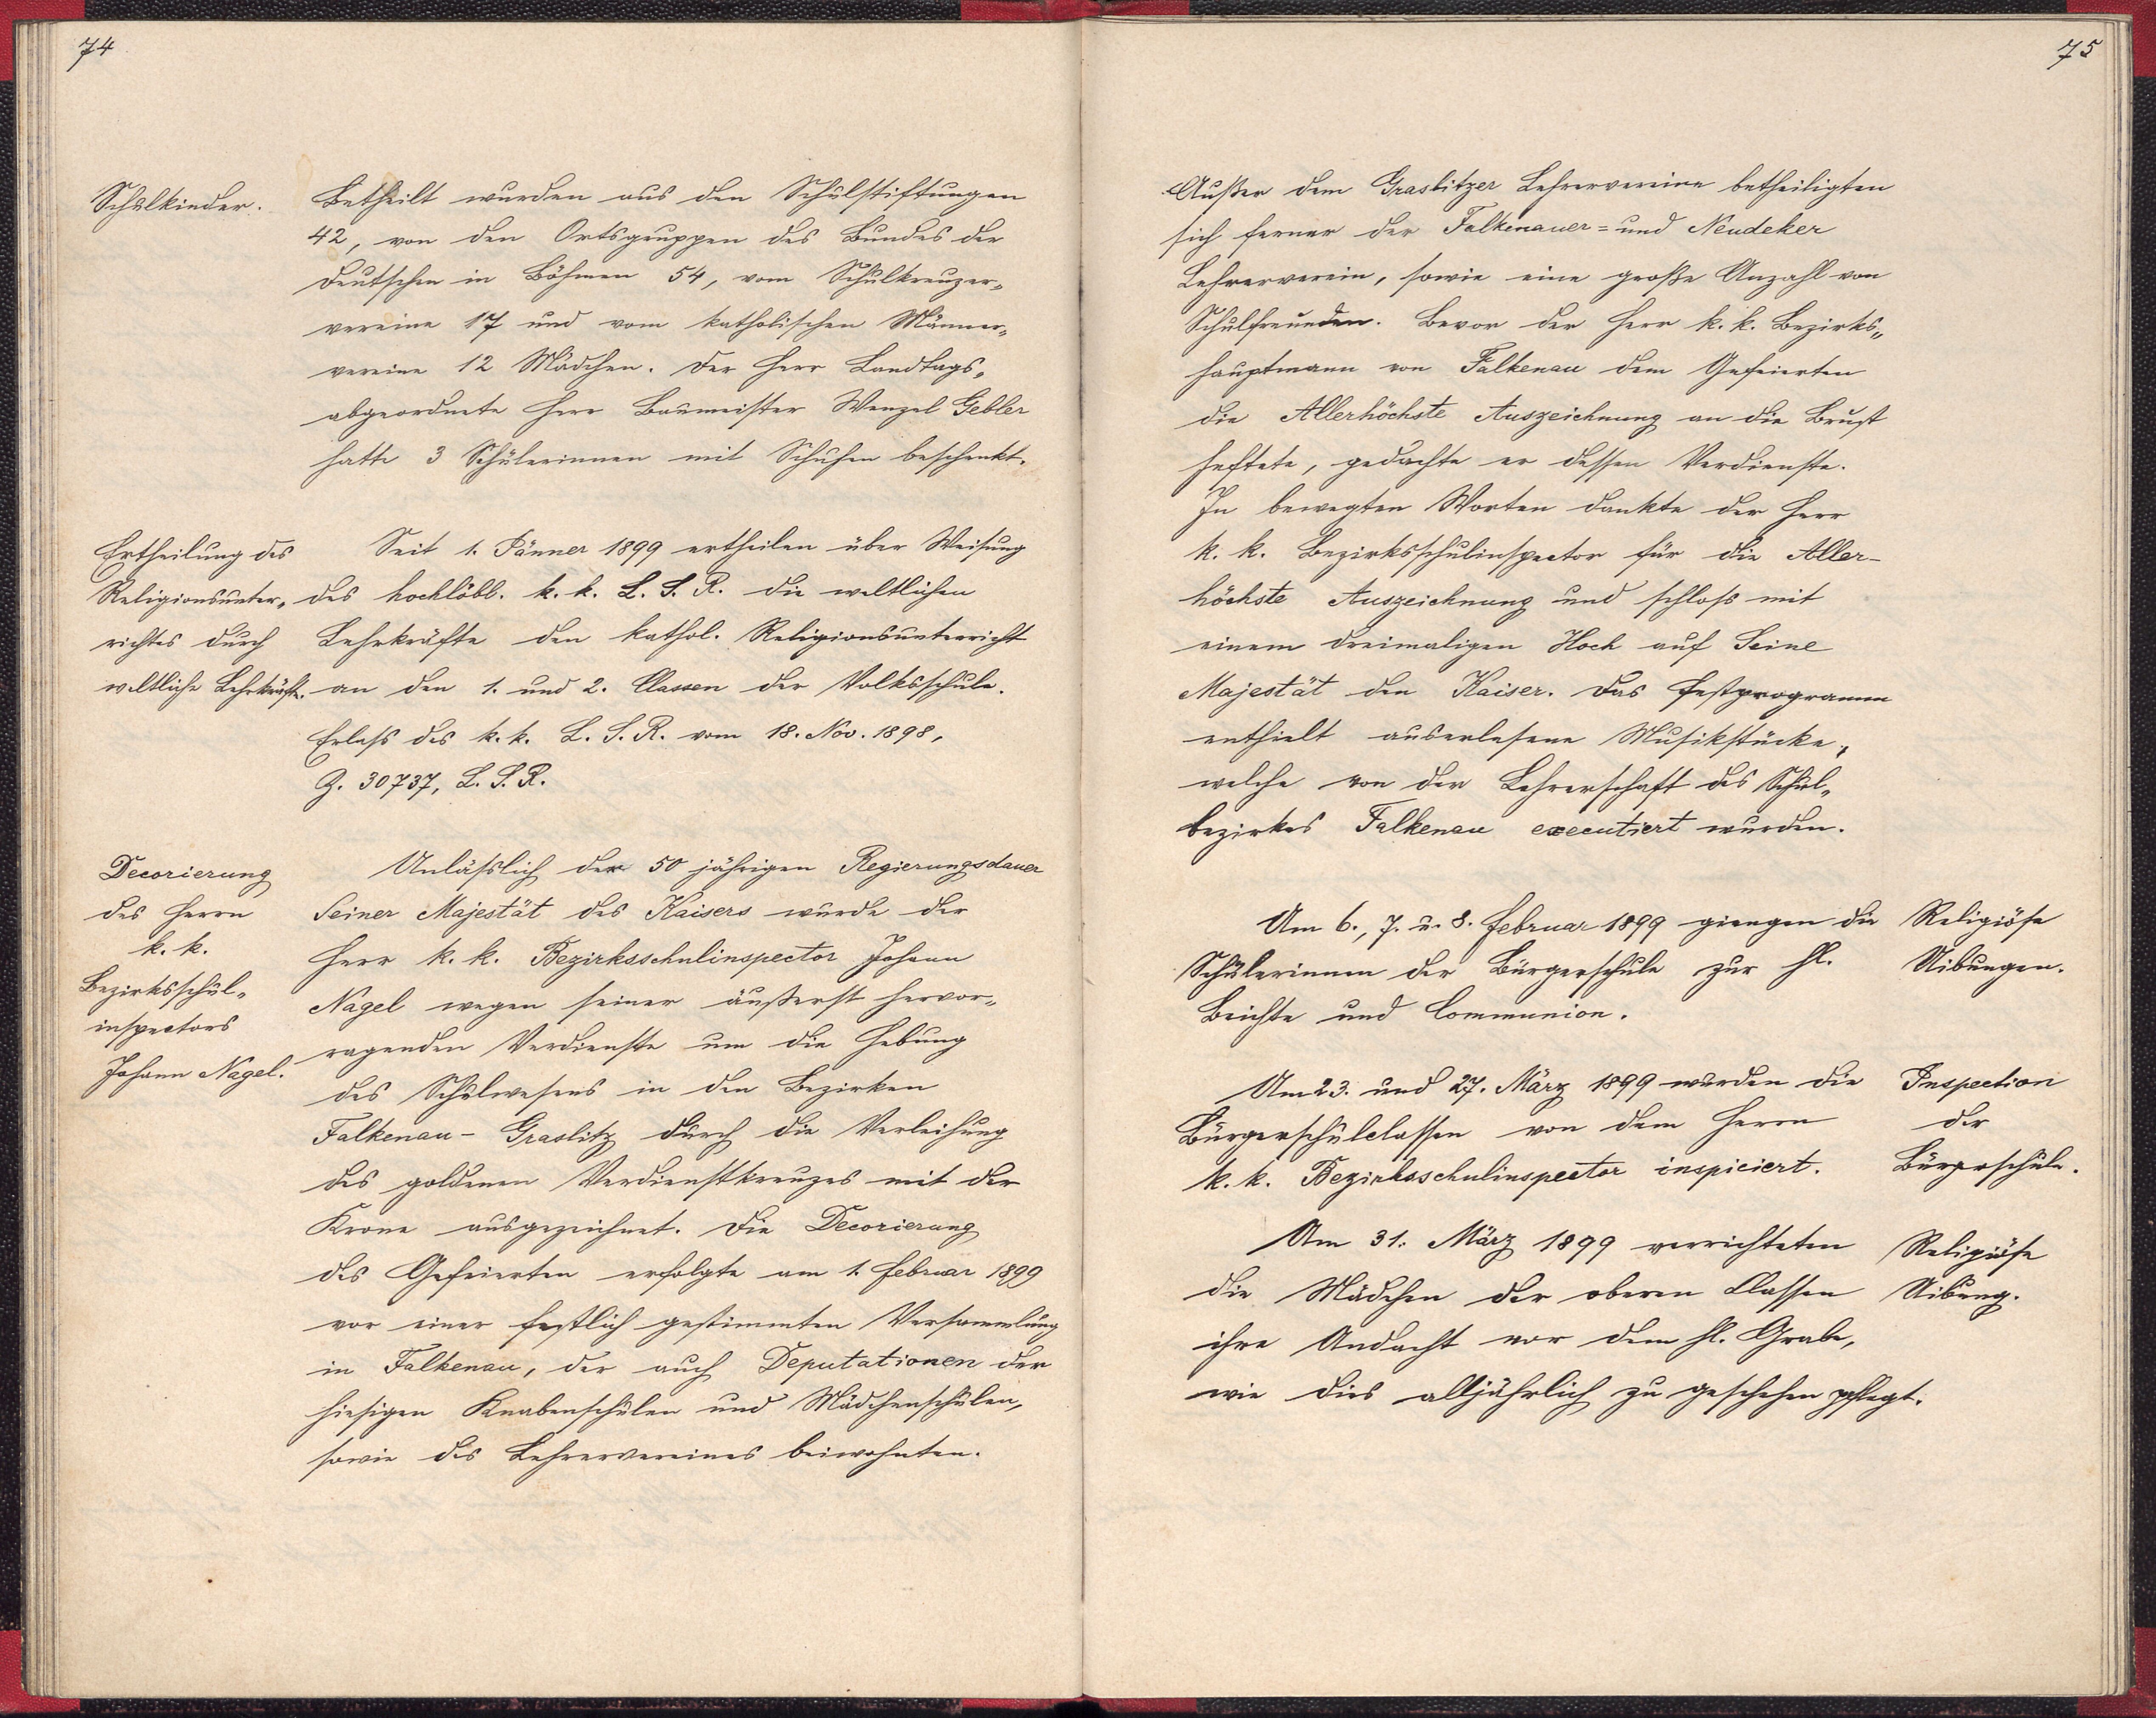 74
Schulkinder.
Betheilt wurden aus den Schulstiftungen
42, von den Ortsgruppen des Bundes der
Deutschen in Böhmen 54, vom Schulkreuzer„
vereine 17 und vom katholischen Männer„
vereine 12 Mädchen. Der Herr Landtags„
abgeordnete Herr Baumeister Wenzel Gebler
hatte 3 Schülerinnen mit Schuhen beschenkt.
Ertheilung des
Religionsunter„
richtes durch
weltliche Lehrkräfte.
Seit 1. Jänner 1899 ertheilen über Weisung
des hochlöbl. k. k. L. S. R. die weltlichen
Lehrkräfte den kathol. Religionsunterricht
an den 1. und 2. Classen der Volksschule.
Erlaß des k. k. L. S. R. vom 18. Nov. 1898,
Z. 30737, L. S. R.
Decorierung
des Herrn
k. k.
Bezirksschul„
inspectors
Johann Nagel.
Anläßlich der 50 jährigen Regierungsdauer
Seiner Majestät des Kaisers wurde der
Herr k. k. Bezirksschulinspector Johann
Nagel wegen seiner äußerst hervor„
ragenden Verdienste um die Hebung
des Schulwesens in den Bezirken
Falkenau - Graslitz durch die Verleihung
des goldenen Verdienstkreuzes mit der
Krone ausgezeichnet. Die Decorierung
des Gefeierten erfolgte am 1. Februar 1899
vor einer festlich gestimmten Versammlung
in Falkenau, der auch Deputationen der
hiesigen Knabenschulen und Mädchenschulen,
sowie des Lehrervereines beiwohnten.
75
Außer dem Graslitzer Lehrervereine betheiligten
sich ferner der Falkenauer= und Neudeker
Lehrerverein, sowie eine große Anzahl von
Schulfreunden. Bevor der Herr k. k. Bezirks„
hauptmann von Falkenau dem Gefeierten
die Allerhöchste Auszeichnung an die Brust
heftete, gedachte er dessen Verdienste.
In bewegten Worten dankte der Herr
k. k. Bezirksschulinspector für die Aller-
höchste Auszeichnung und schloß mit
einem dreimaligen Hoch auf Seine
Majestät den Kaiser. Das Festprogramm
enthielt auserlesene Musikstücke,
welche von der Lehrerschaft des Schul„
bezirkes Falkenau executiert wurden.
Am 6., 7. u. 8. Februar 1899 giengen die
Schülerinnen der Bürgerschule zur hl.
Beichte und Communion.
Religiöse
Uibungen.
Am 23. und 27. März 1899 wurden die
Bürgerschulclassen von dem Herrn
k. k. Bezirksschulinspector inspiciert.
Inspection
der
Bürgerschule.
Am 31. März 1899 verrichteten
die Mädchen der oberen Classen
ihre Andacht vor dem hl. Grabe,
wie dies alljährlich zu geschehen pflegt.
Religiöse
Uibung.